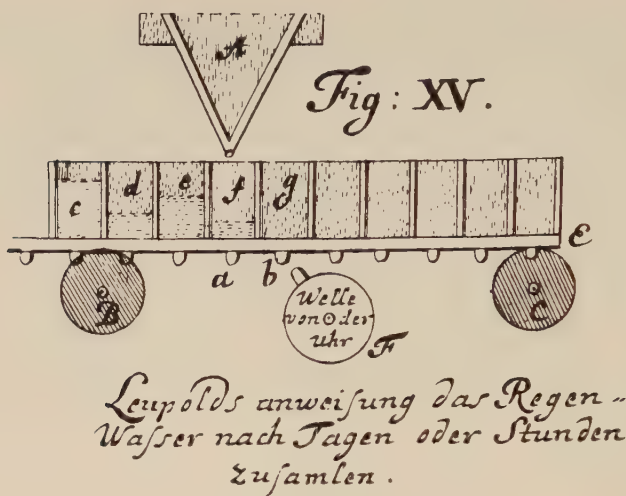 A
Fig: XV.
c d e f g
E
a b
B
Welle
von der
Uhr
F
C
Leupolds anweiſung das Regen-
Waſſer nach Tagen oder Stunden
zuſamlen.